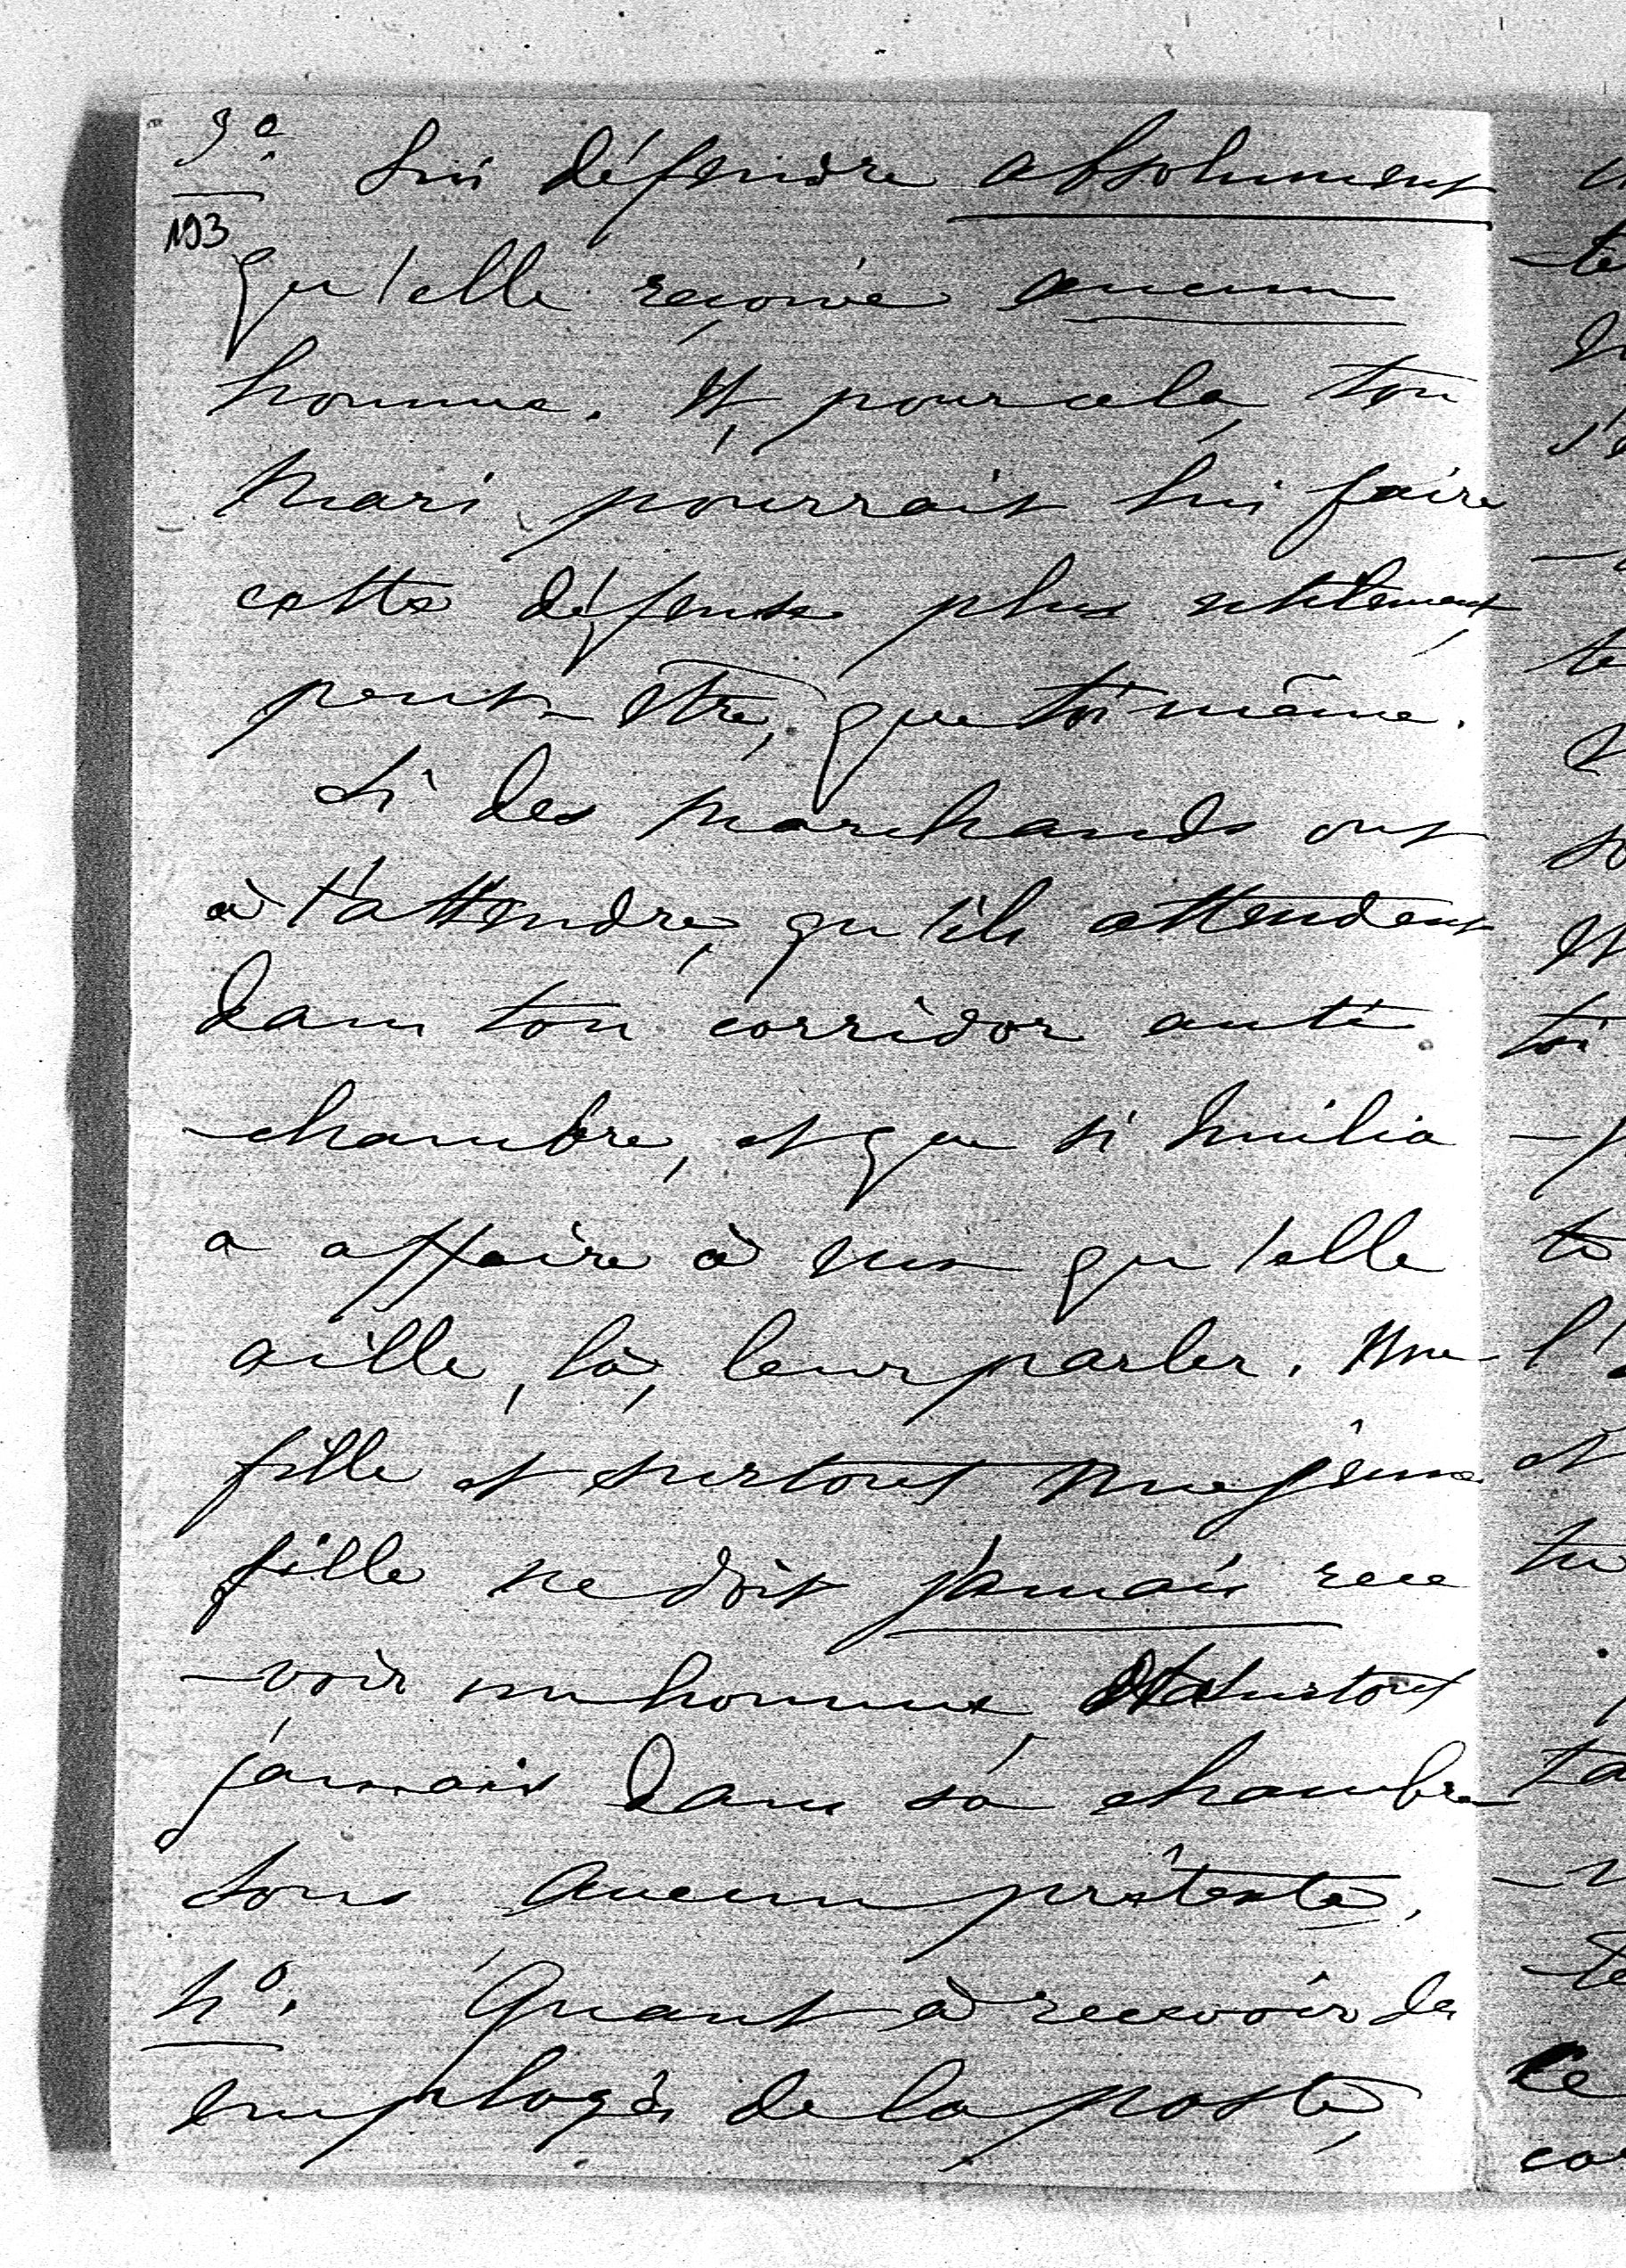 3º Lui défendre absolument
193
qu'elle reçoive aucun
homme. Et, pour cela, ton
mari pourrait lui faire
cette défense plus utilement,
peut-être, que toi même.
Si des marchands ont
à t'attendre, qu'ils attendent
dans ton corridor anti
-chambre, et que si Emilia
a affaire à eux qu'elle
aille, là, leur parler. Une
fille et surtout une jeune
fille ne doit jamais rece
-voir un homme, et surtout
jamais dans sa chambre
sous aucun prétexte.
4º. Quant à recevoir des
employés de la poste,